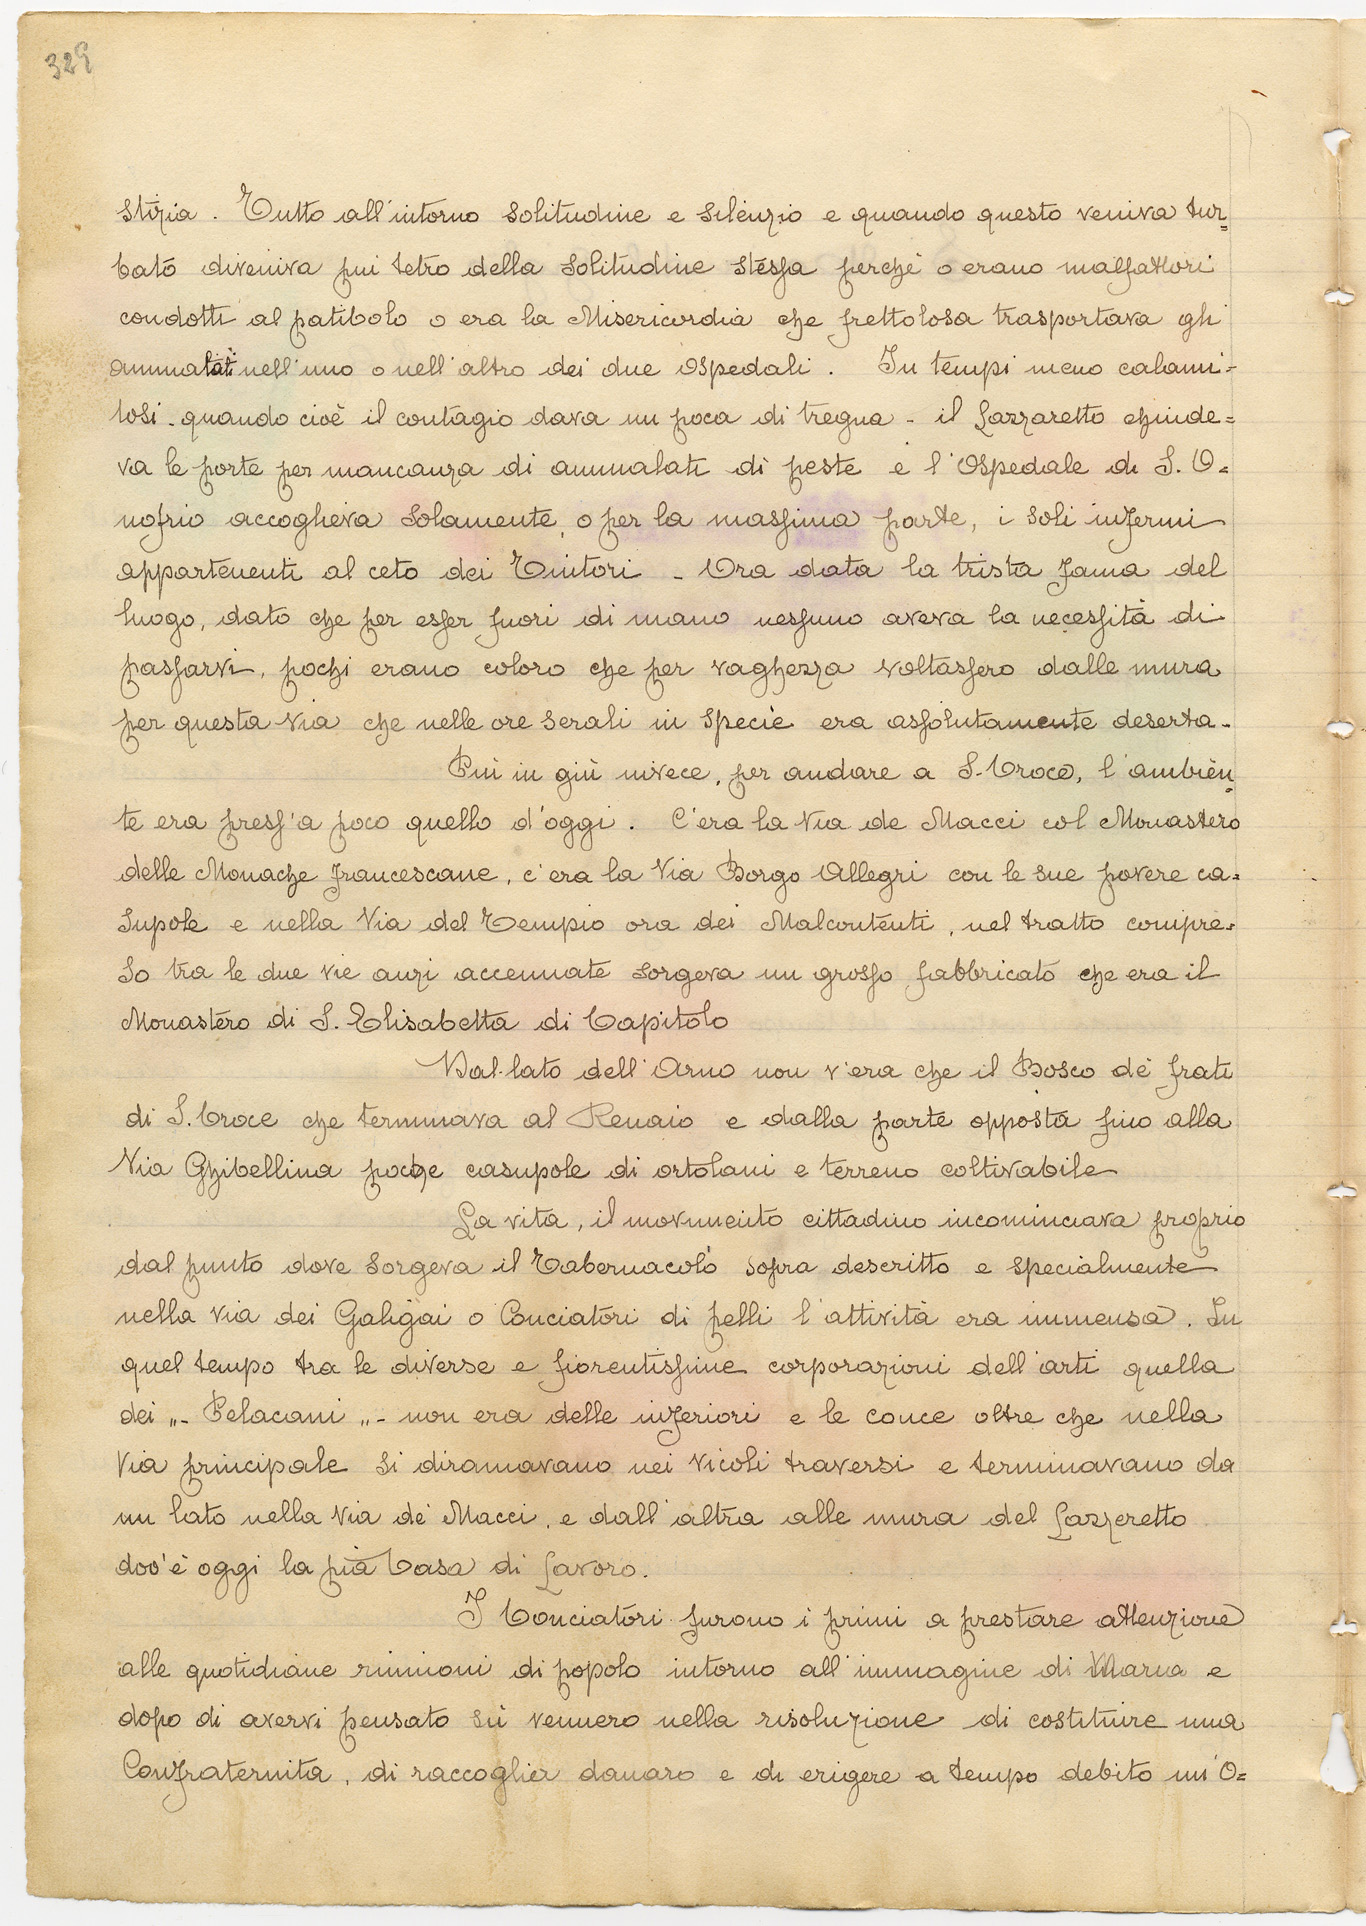 329
stizia. Tutto all'intorno solitudine e silenzio e quando questo veniva tur=
bato diveniva più tetro della solitudine stessa perchè o erano malfattori
condotti al patibolo o era la Misericordia che frettolosa trasportava gli
ammalati nell'uno o nell'altro dei due Ospedali. In tempi meno calami=
tosi - quando cioè il contagio dava un poca di tregua - il Lazzaretto chiude=
va le porte per mancanza di ammalati di peste e l'Ospedale di S. O=
nofrio accoglieva solamente, o per la massima parte, i soli infermi
appartenenti al ceto dei Tintori - Ora data la trista fama del
luogo, dato che per esser fuori di mano nessuno aveva la necessità di
passarvi, pochi erano coloro che per vaghezza voltassero dalle mura
per questa via che nelle ore serali in specie era assolutamente deserta -
Più in giù invece, per andare a S. Croce, l'ambien=
te era press'a poco quello d'oggi. C'era la Via de Macci col Monastero
delle Monache francescane, c'era la Via Borgo Allegri con le sue povere ca=
supole e nella Via del Tempio ora dei Malcontenti, nel tratto compre=
so tra le due vie anzi accennate sorgeva un grosso fabbricato che era il
Monastero di S. Elisabetta di Capitolo
Dal lato dell'Arno non v'era che il Bosco de' frati
di S. Croce che terminava al Renaio e dalla parte opposta fino alla
Via Ghibellina poche casupole di ortolani e terreno coltivabile
La vita, il movimento cittadino incominciava proprio
dal punto dove sorgeva il Tabernacolo sopra descritto e specialmente
nella via dei Galigai o Conciatori di pelli l'attività era immensa. In
quel tempo tra le diverse e fiorentissime corporazioni dell'arti quella
dei „- Pelacani „- non era delle inferiori e le conce oltre che nella
Via principale si diramavano nei vicoli traversi e terminavano da
un lato nella Via de' Macci, e dall'altra alle mura del Lazzeretto
dov'è oggi la pia Casa di Lavoro.
I Conciatori furono i primi a prestare attenzione
alle quotidiane riunioni di popolo intorno all'immagine di Maria e
dopo di avervi pensato sù vennero nella risoluzione di costituire una
Confraternita, di raccoglier danaro e di erigere a tempo debito un'O=